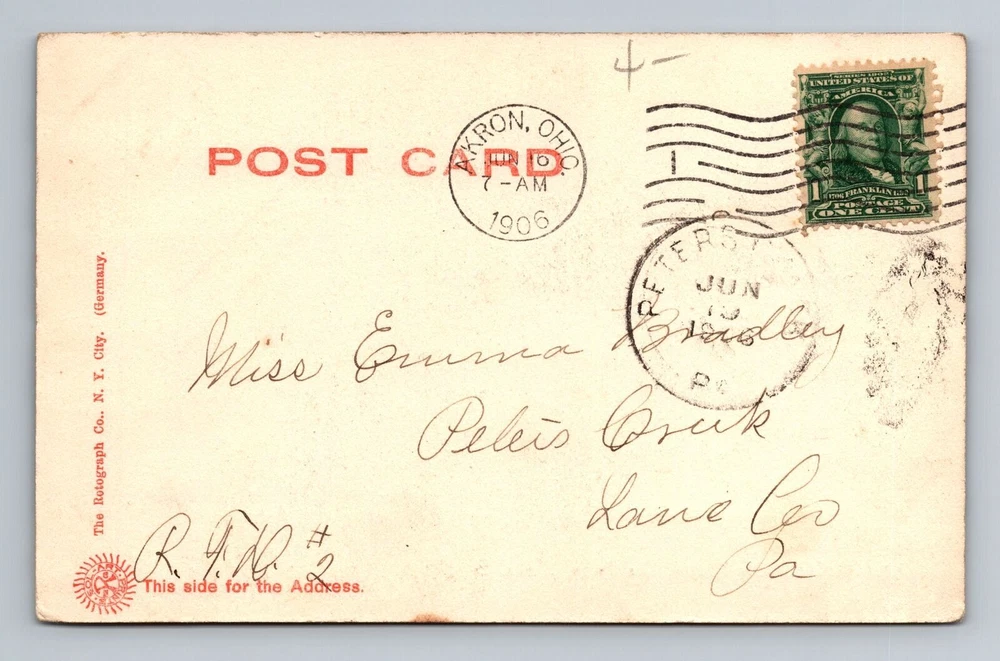 4-
SERIES 1902
UNITED STATES OF
AMERICA
1 FRANKLIN 1
POSTAGE
ONE CENT
POST CARD
AKRON, OHIO.
JUN 16
7-AM
1906
1
PETERS
JUN
Pa
Miss Emma Bradley
Peters Creek
Lanc Co
Pa
R. F. D. #2
The Rotograph Co., N. Y. City. (Germany.
This side for the Address.